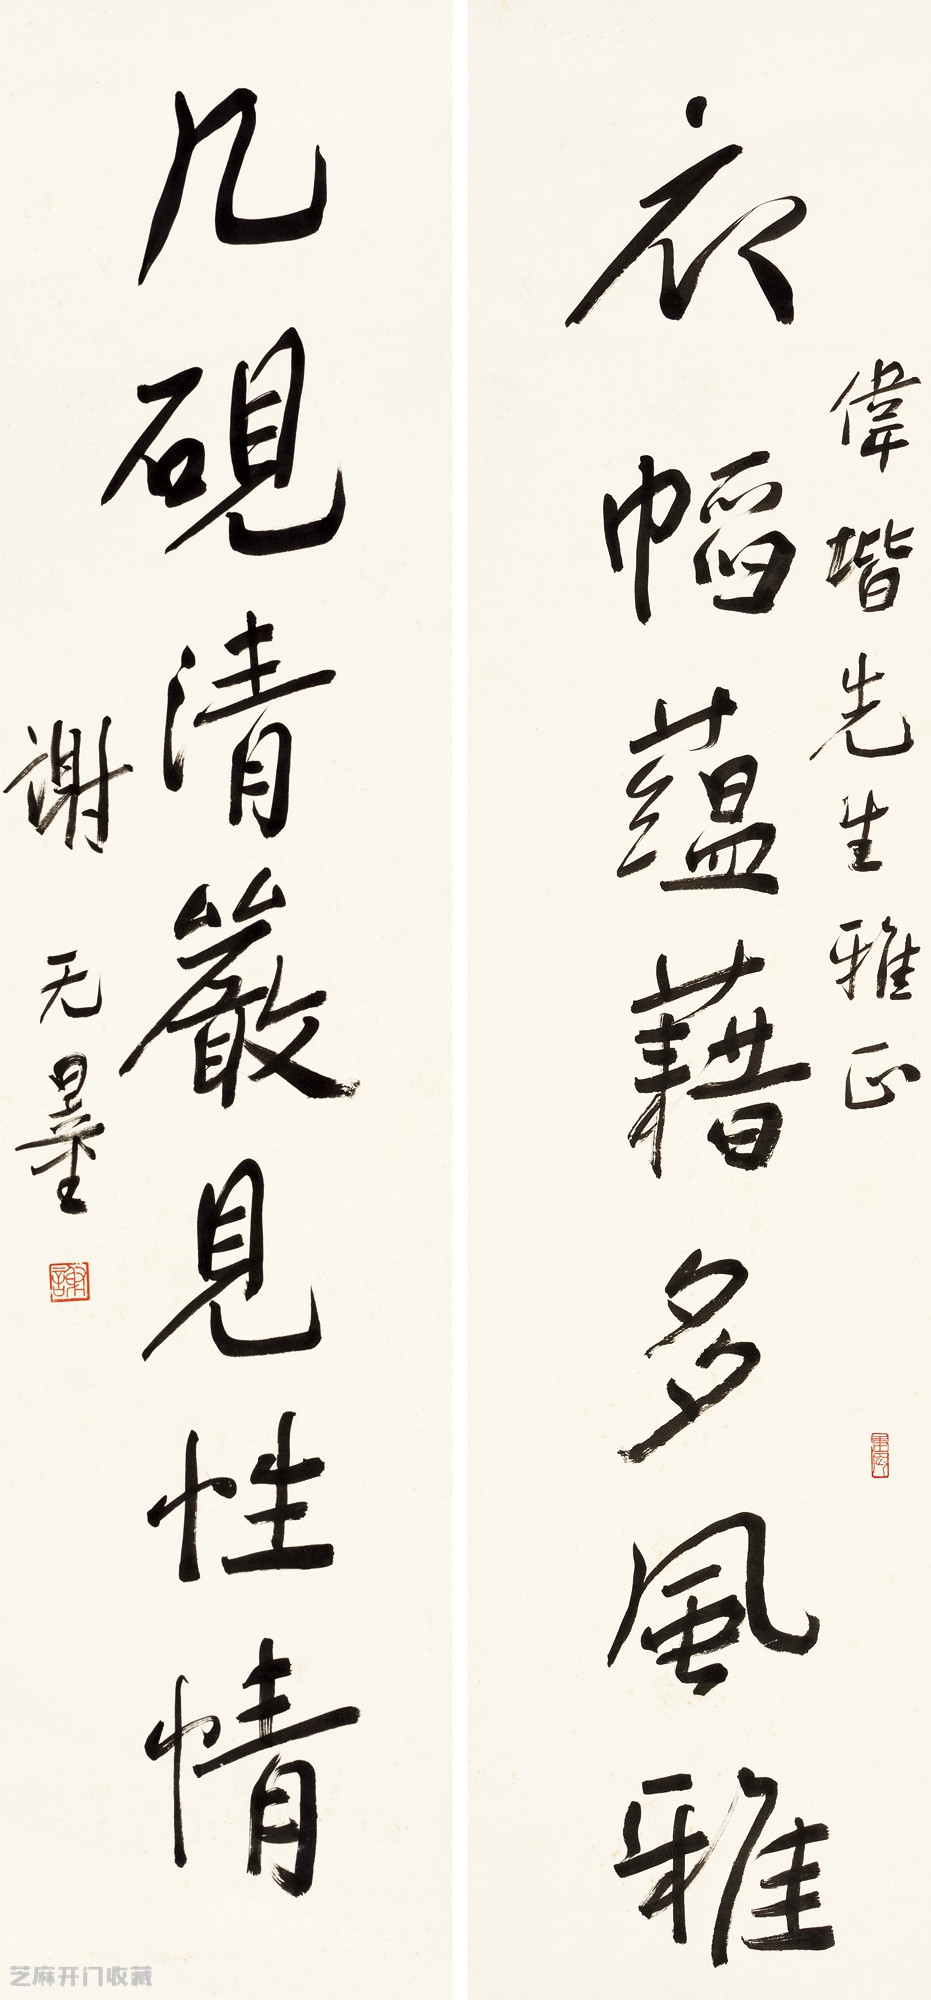 偉堦先生雅正
衣幅蘊藉多風雅
几硯清嚴見性情
謝无量
謝
芝麻开门收藏